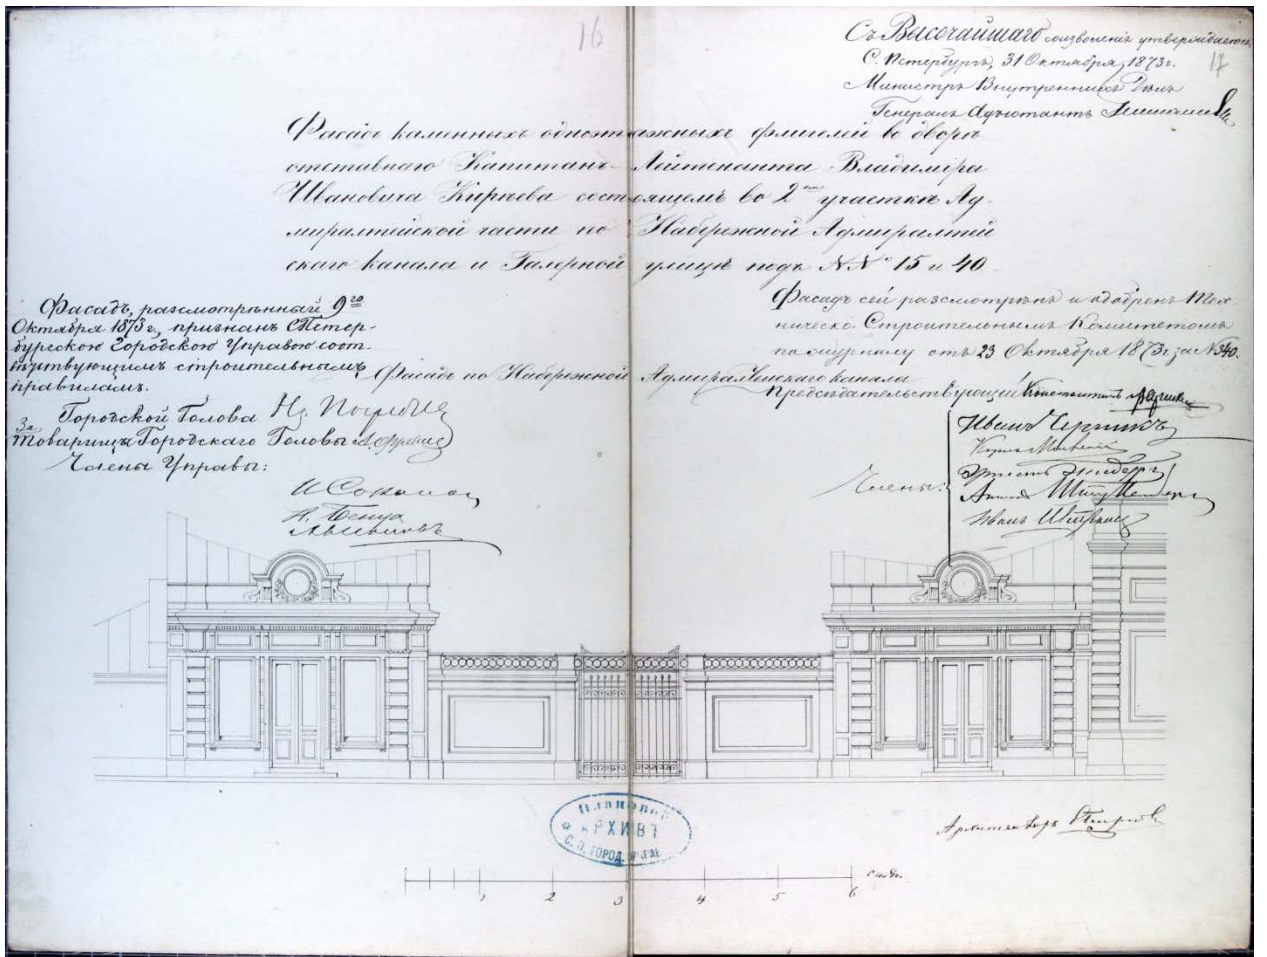 16
Съ Высочайшаго соизволенія утверждается.
С. Петербургъ, 31 Октября 1873 г.
17
Министръ Внутреннихъ Дѣлъ
Генералъ Адъютантъ
Фасадъ каменныхъ одноэтажныхъ флигелей во дворѣ
отставнаго Капитанъ-Лейтенанта Владиміра
Ивановича Кирѣева состоящемъ во 2мъ участкѣ Ад-
миралтейской части по Набережной Адмиралтей
скаго канала и Галерной улицѣ подъ NNо 15 и 40
Фасадъ, разсмотрѣнный 9го
Октября 1873 г., признанъ СПетер-
бургскою Городскою Управою соот-
вѣтствующимъ строительнымъ
правиламъ.
Городской Голова Н. Погребовъ
За Товарища Городскаго Головы
Члены Управы:
А. Бенуа
Фасадъ сей разсмотрѣнъ и одобренъ Тех-
ническо-Строительнымъ Комитетомъ
по журналу отъ 23 Октября 1873 г. за N340.
Фасадъ по Набережной Адмиралтейскаго канала
Предсѣдательствующій Константинъ
Члены:
Иванъ Черникъ
Эрнестъ
Иванъ
Плановой
АРХИВЪ
С. П. ГОРОД. УПРАВ
Архитекторъ
1 2 3 4 5 6 саж.